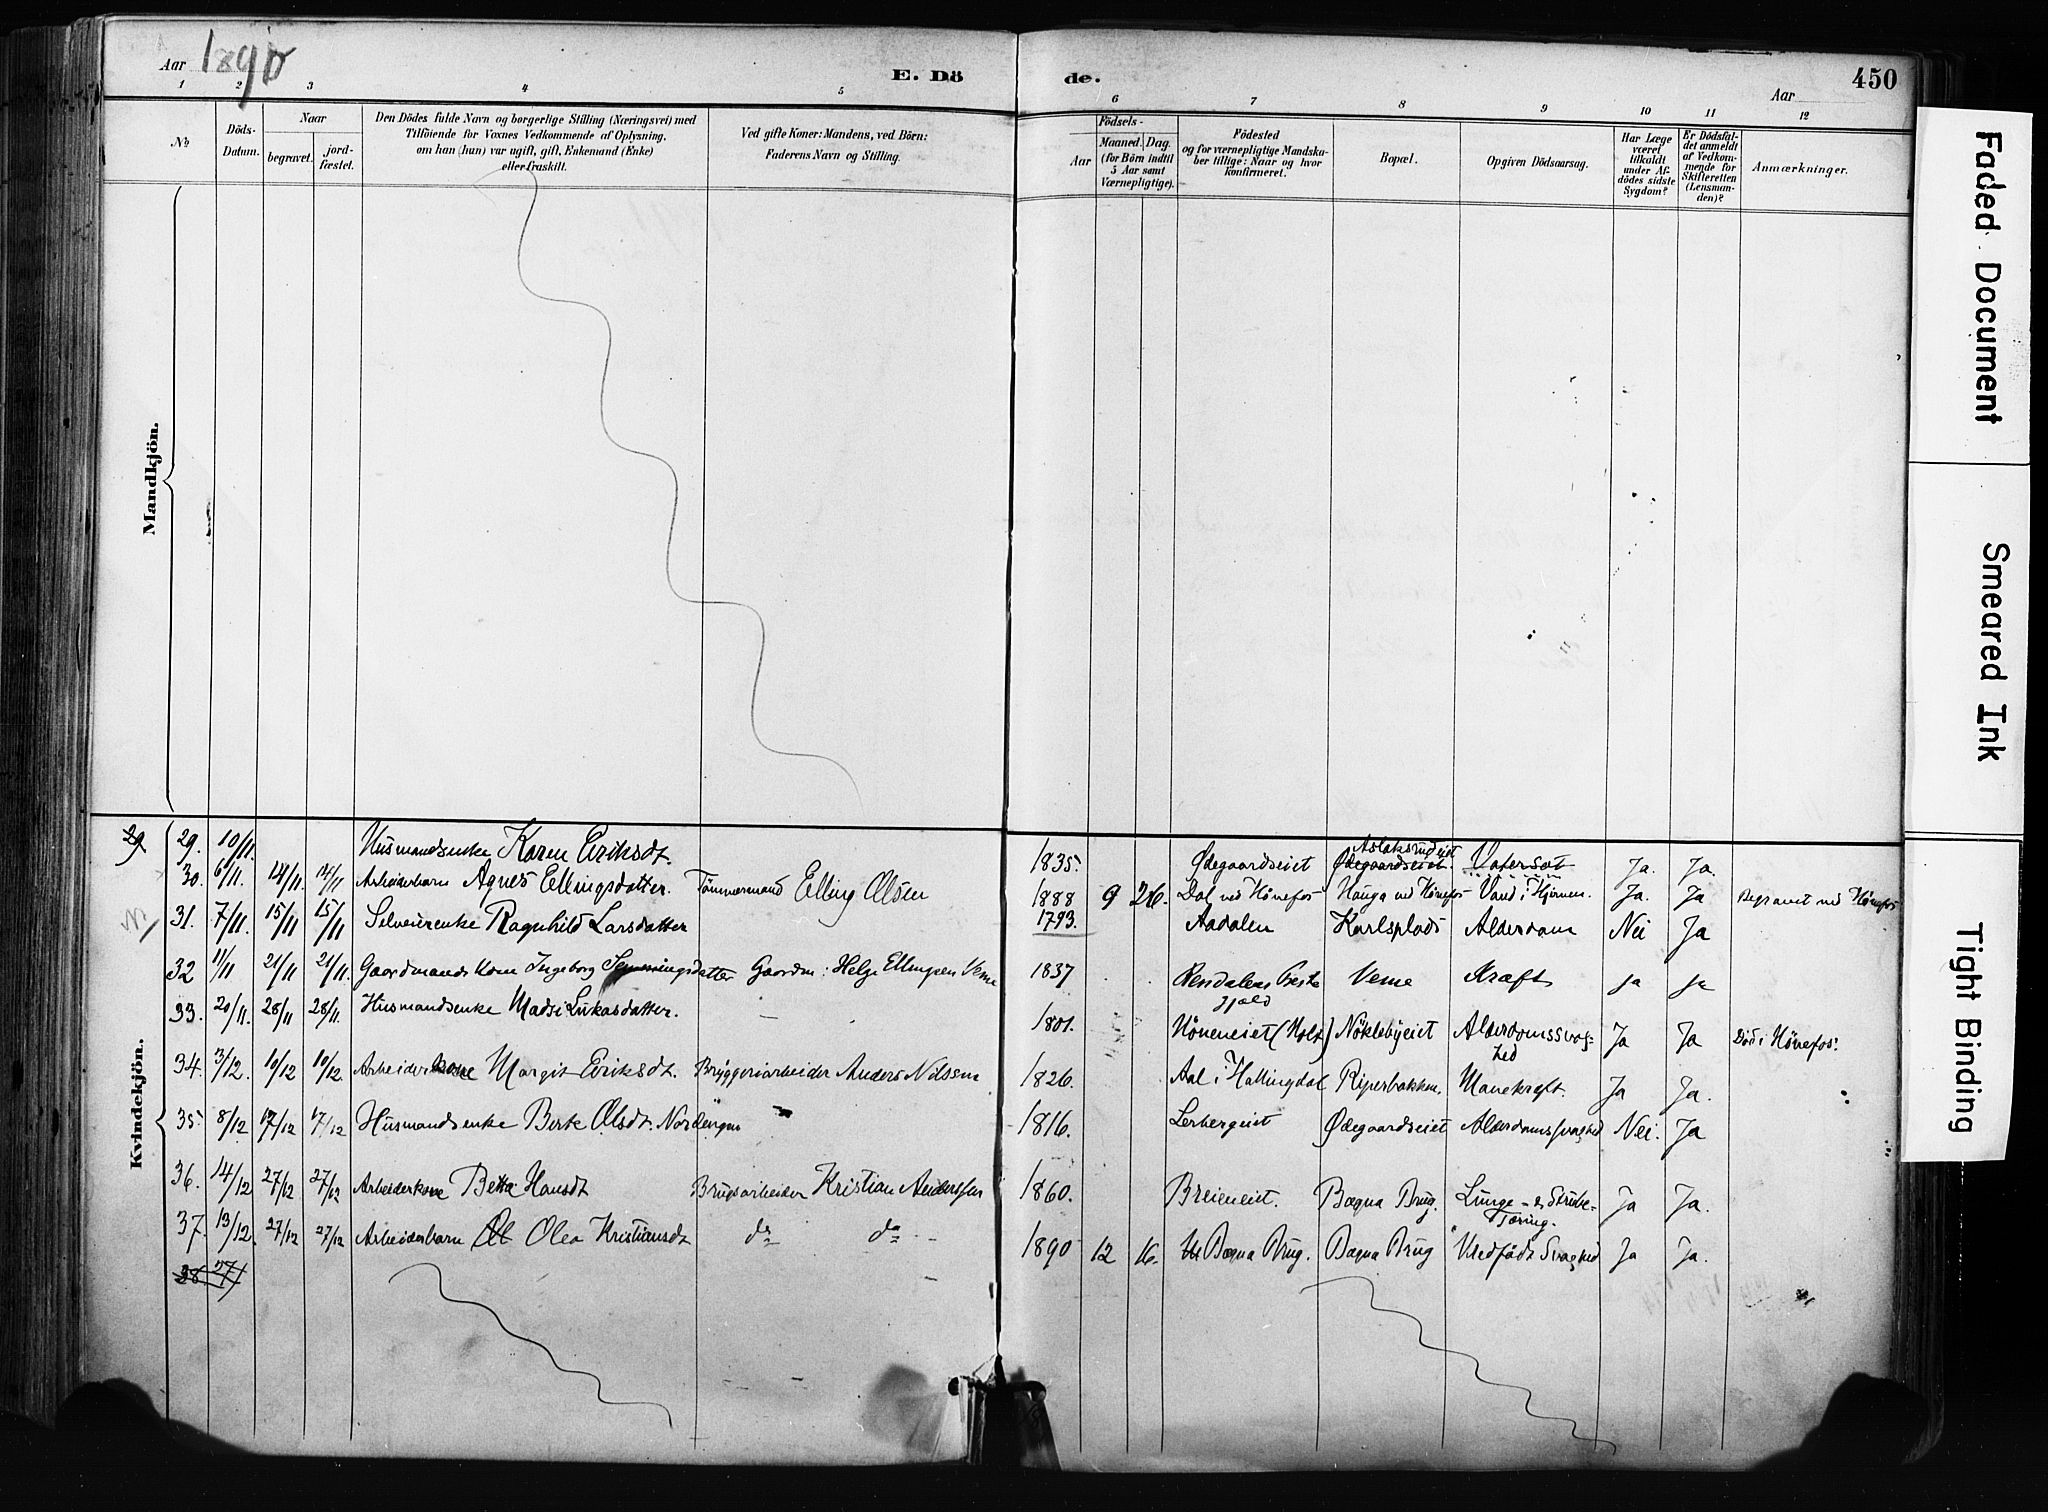 Aar 1890
E. Dö
de.
Aar
450
1 2 3 4 5 6 7 8 9 10 11 12
No
Döds-
Datum.
Naar
begravet.
jord-
fæstet.
Den Dödes fulde Navn og borgerlige Stilling (Næringsvei) med
Tilföiende för Voxnes Vedkommende af Oplysning,
om han (hun) var ugift, gift, Enkemand (Enke)
eller fraskilt.
Ved gifte Koner: Mandens, ved Börn:
Faderens Navn og Stilling.
Födsels-
Aar
Maaned. Dag.
(for Börn indtil
5 Aar samt
Værnepligtige).
Födested
og for værnepligtige Mandska-
ber tillige: Naar og hvor
konfirmeret.
Bopæl.
Opgiven Dödsaarsag.
Har Læge
været
tilkaldt
under Af-
dödes sidste
Sygdom?
Er Dödsfal-
det anmeldt
af Vedkom-
mende for
Skifteretten
(Lensman-
den)?
Anmærkninger.
Mandkjön.
Kvindekjön.
29 29. 10/11. Husmandsenke Karen Eriksdt. 1835. Ødegaardseiet Aslaksrudeiet Ødegaardseiet Vatersot Ja. Ja.
30. 6/11. 14/11. 14/11 Arbeiderbarn Agnes Ellingsdatter. Tömmermand Elling Olsen 1888 9 26. Dal ved Hönefos Hauga ved Hönefos Vand i Hjernen. Ja. Ja Begravet ved Hönefos
31. 7/11 15/11 15/11 Selveierenke Ragnhild Larsdatter 1793. Aadalen Karlsplads Alderdom Nei Ja
32 11/11 21/11 21/11. Gaardmands Kone Ingeborg datter Gaardm: Helge Ellingsen Veme 1837 Rendalens Præste
gjæld Veme Kræft ja ja
33. 20/11. 28/11 28/11. Husmandsenke Madsi Lukasdatter. 1801. Höneneiet (Holt) Nöklebyeiet Alderdomssvag-
hed Ja Ja Död i Hönefos.
34. 3/12. 10/12 10/12. Arbeiderkone Margit Eriksdt. Bryggeriarbeider Anders Nilssen 1826. Aal i Hallingdal Riperbakken. Mavekræft. Ja Ja.
35 8/12 17/12 17/12 Husmandsenke Berte Olsdt. Nordengen 1816. Lerbergeiet Ødegaardseiet Alderdomssvaghed Nei. Ja
36. 14/12 27/12 27/12 Arbeiderkone Hansdt Brugsarbeider Kristian Anderssen 1860. Breieneiet. Bægna Brug. Lunge- & Strube-
Tæring. Ja Ja.
37. 13/12. 27/12 27/12 Arbeiderbarn Olea Kristiansdt do do 1890 12 16. Bægna Brug. Bægna Brug Medfödt Svaghed Ja Ja.
38 27/
Faded Document
Smeared Ink
Tight Binding